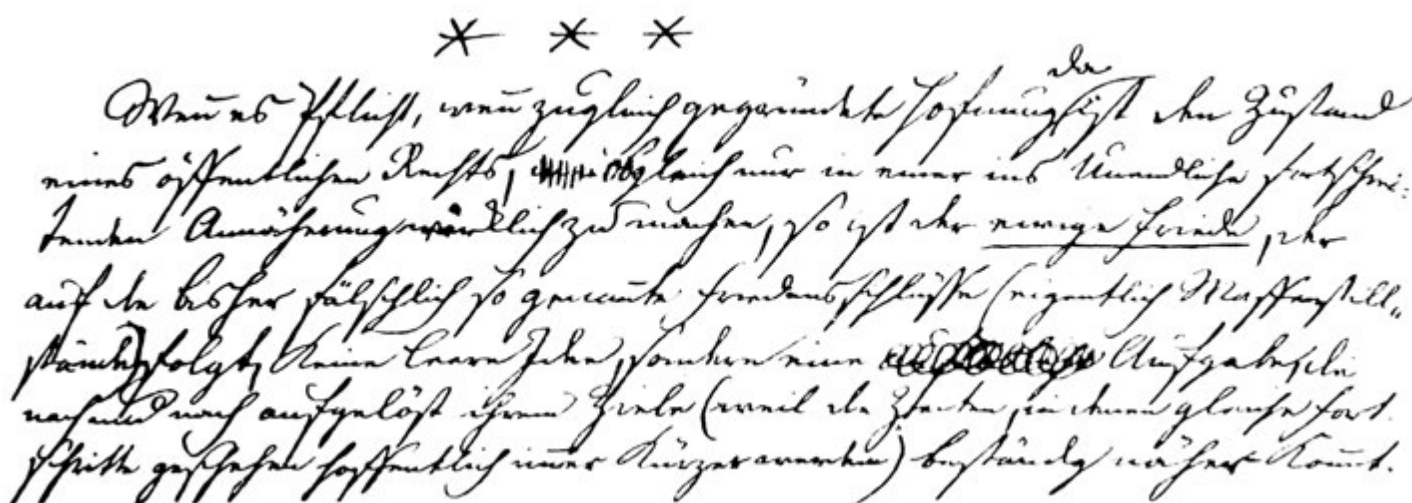 * * *
da
Wen̄ es Pflicht, wen̄ zugleich gegründete Hofnung ist den Zustand
eines öffentlichen Rechts, obgleich nur in einer ins Unendliche fortschrei-
tenden Annäherung wirklich zu machen, so ist der ewige Friede, der
auf die bisher fälschlich so genannte Friedensschlüsse (eigentlich Waffenstill-
stände) folgt, keine leere Idee, sondern eine Aufgabe, die
nach und nach aufgelöst ihrem Ziele (weil die Zeiten, in denen gleiche Fort-
schritte geschehen hoffentlich im̄er kürzer werden) beständig näher kom̄t.